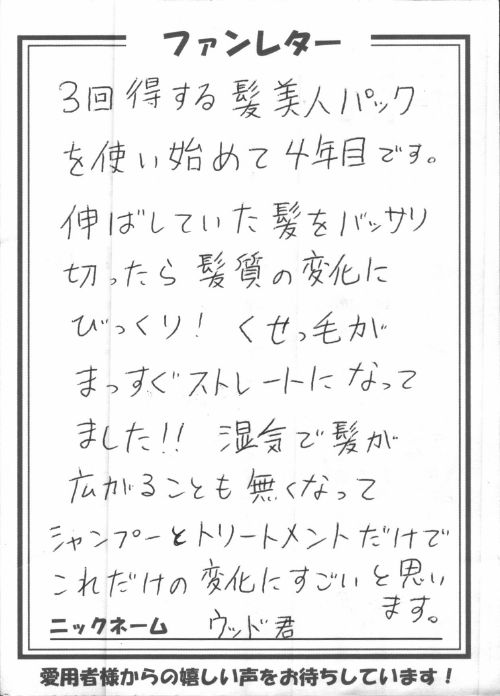 ファンレター
3回得する髪美人パック
を使い始めて4年目です。
伸ばしていた髪をバッサリ
切ったら髪質の変化に
びっくり! くせっ毛が
まっすぐストレートになって
ました!! 湿気で髪が
広がることも無くなって
シャンプーとトリートメントだけで
これだけの変化にすごいと思い
ます。
ニックネーム ウッド君
愛用者様からの嬉しい声をお待ちしています!